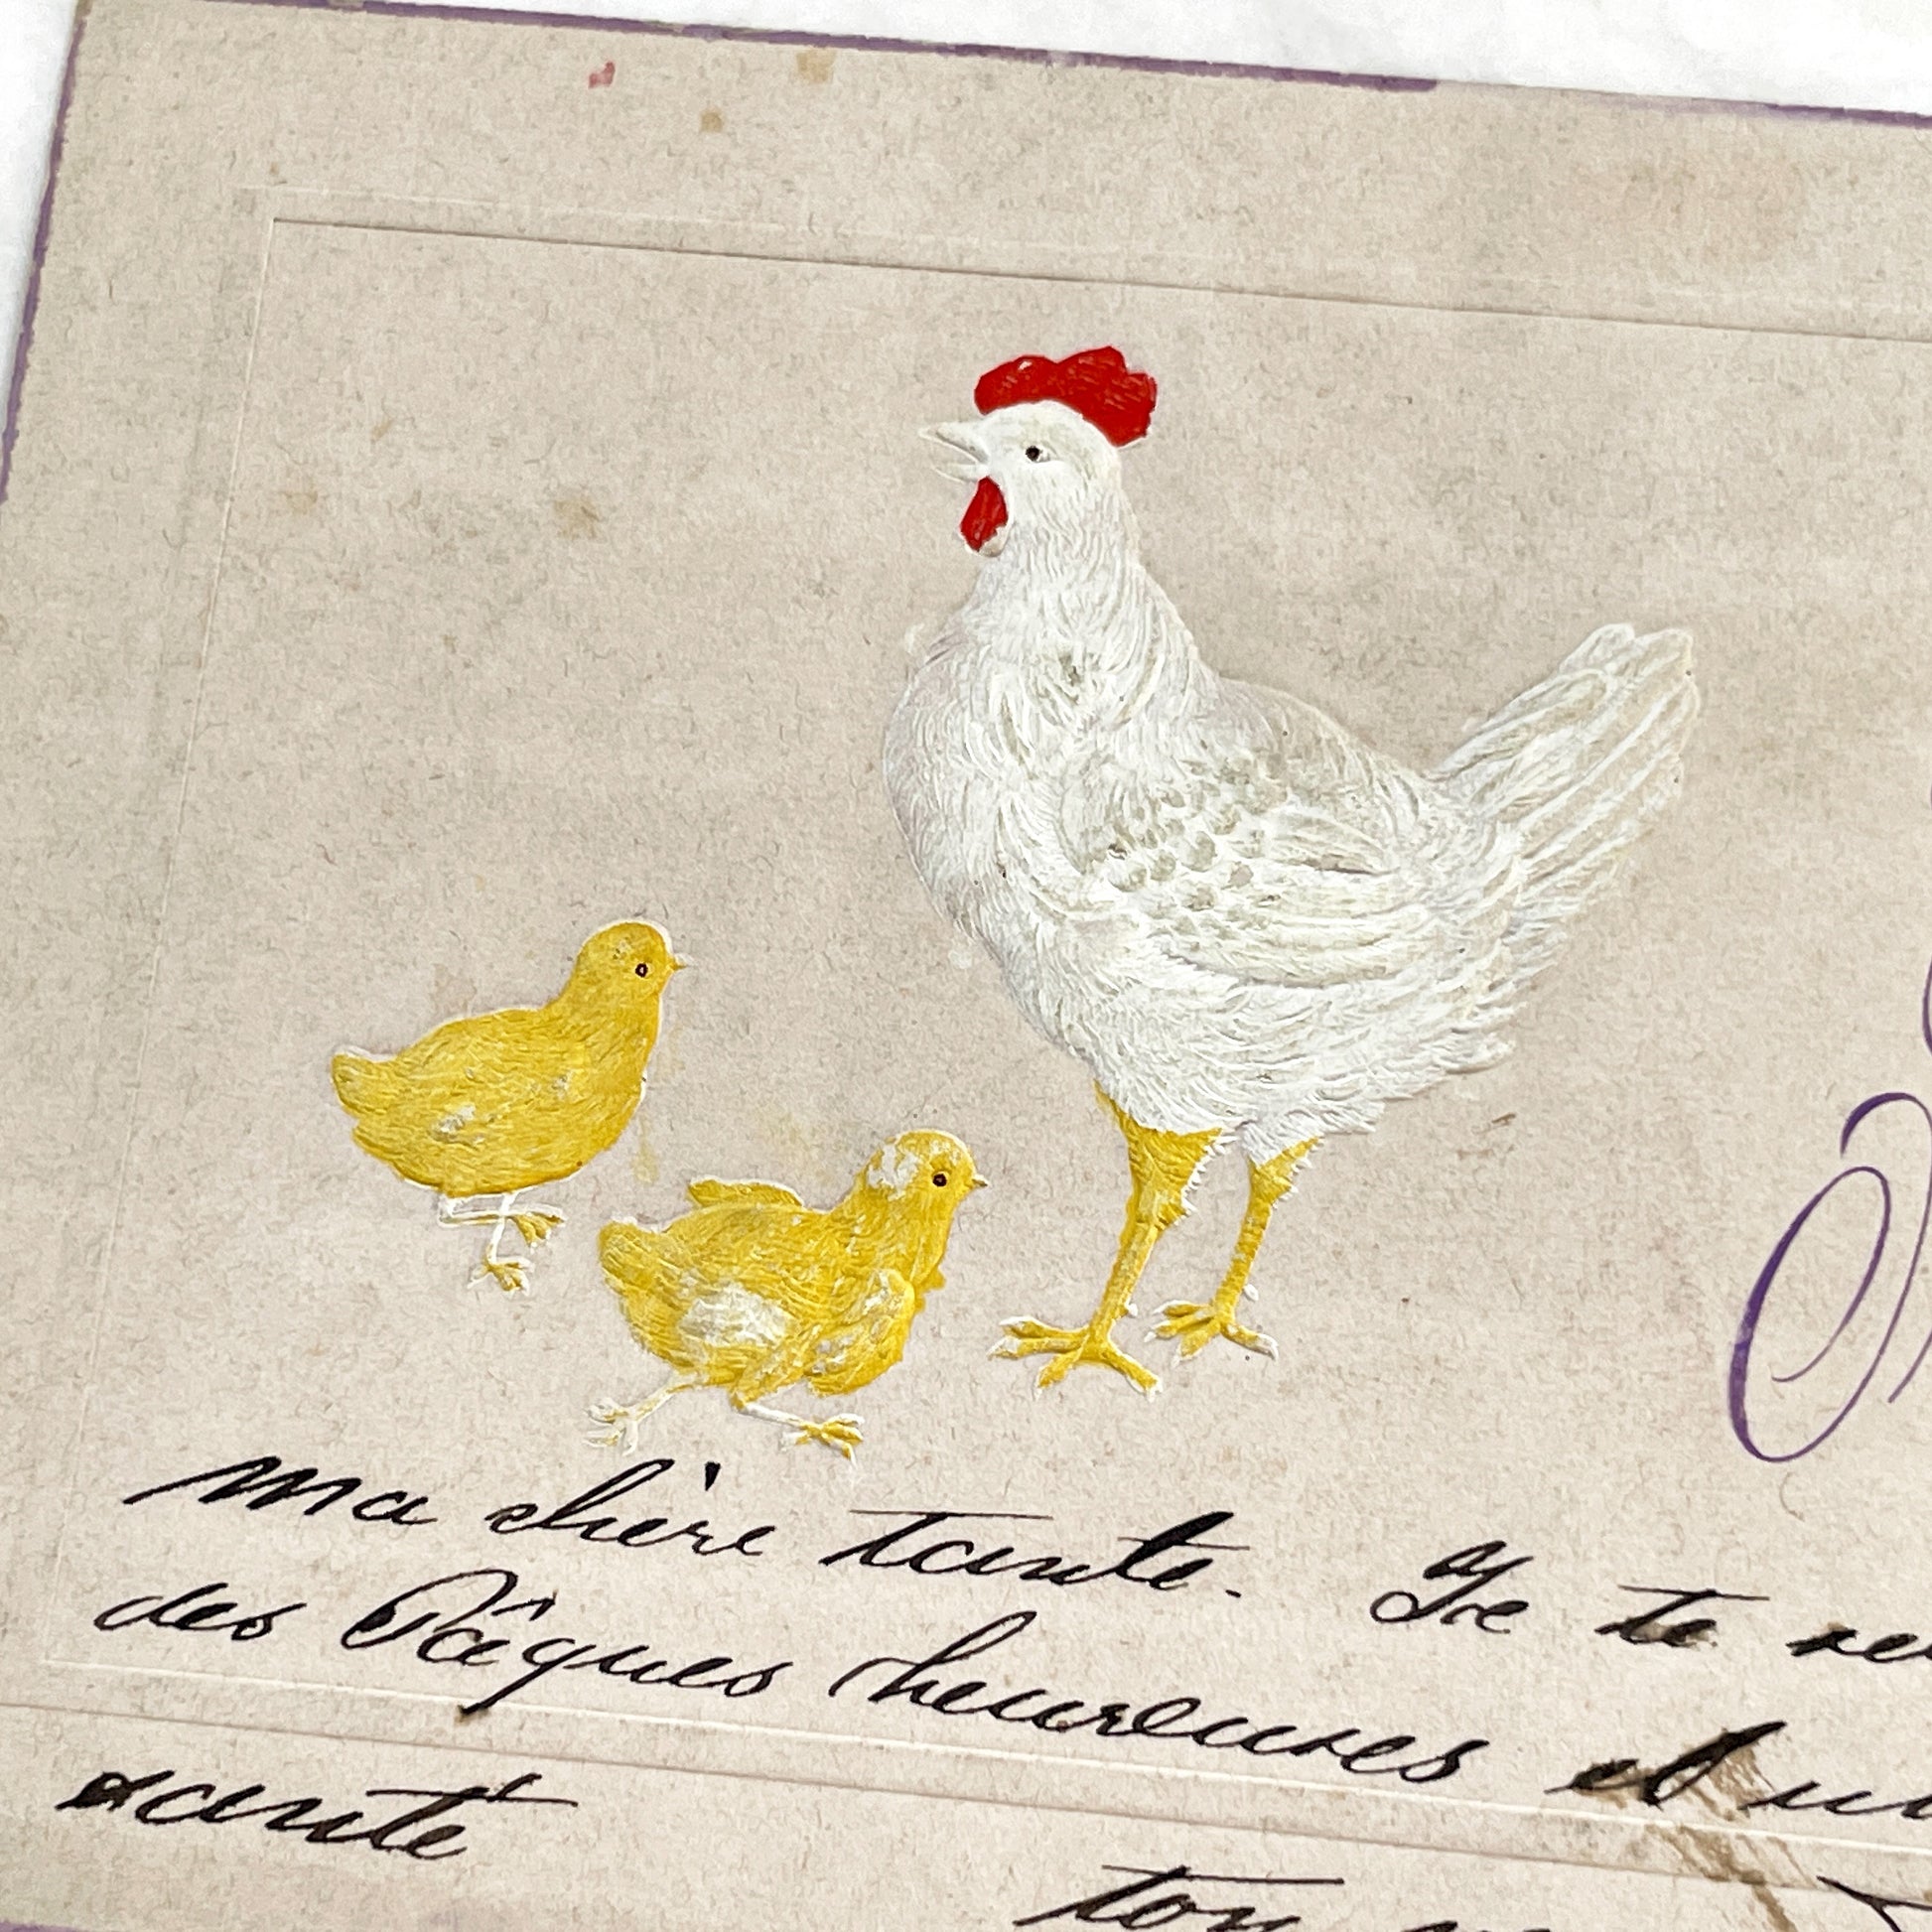 Ma chère Tante. Je te
des Pâques heureuses et
santé
ton